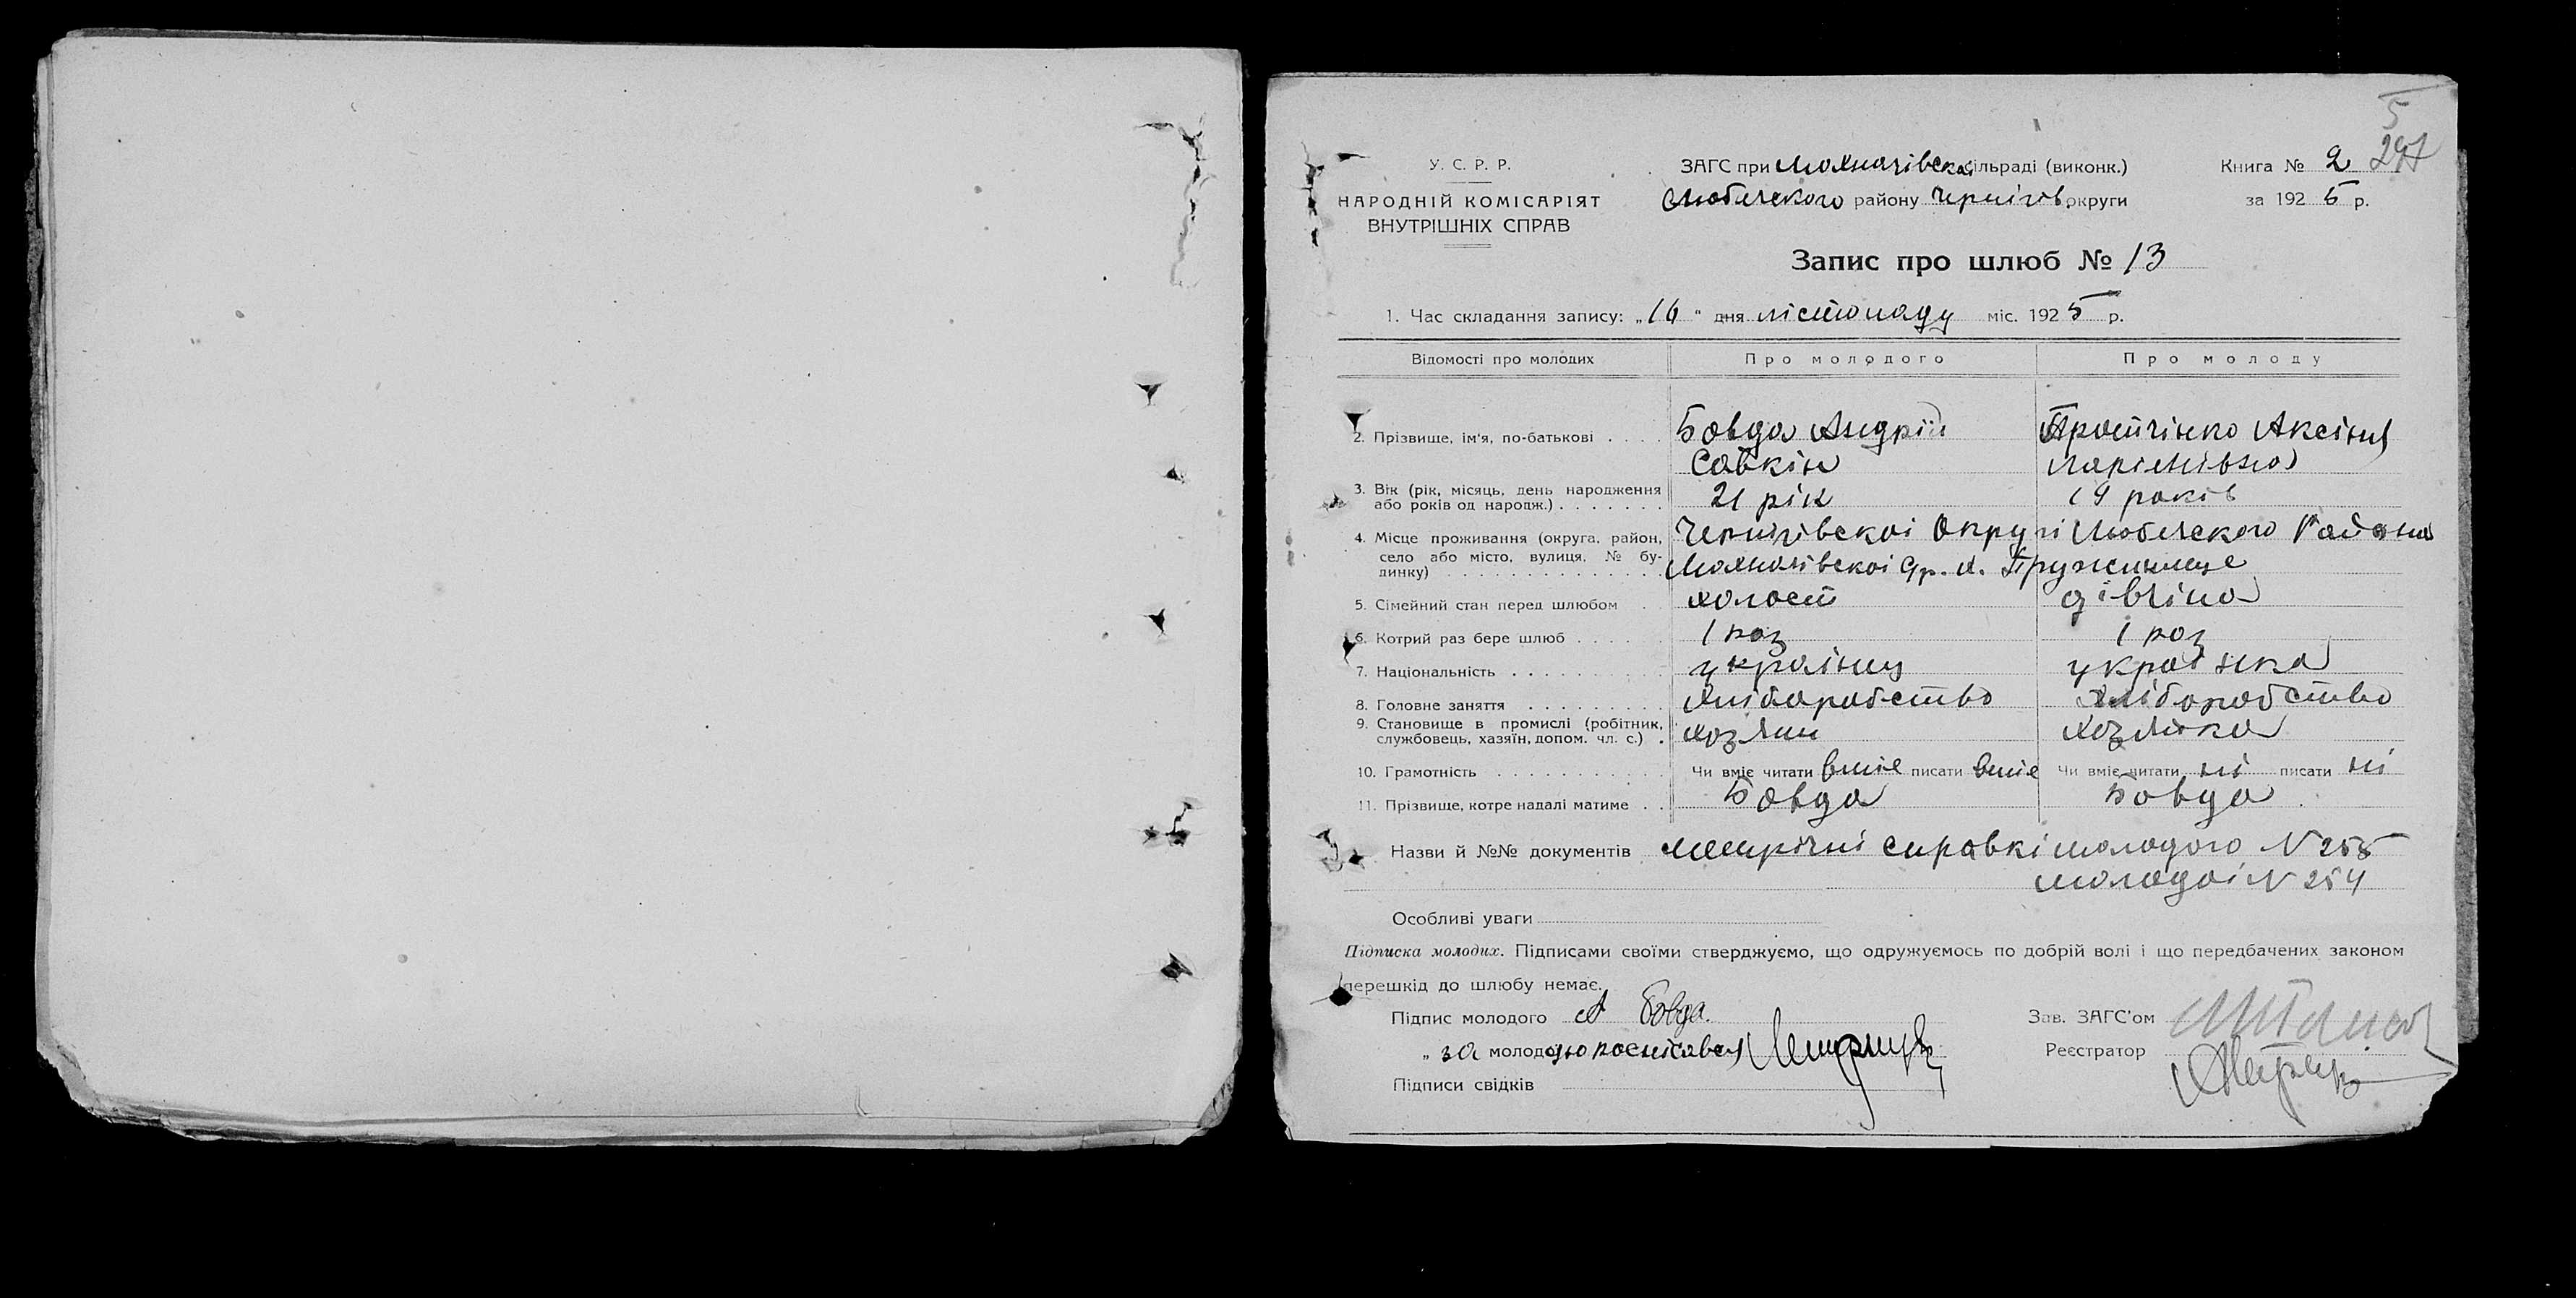 5
297
У. С. Р. Р.
НАРОДНІЙ КОМІСАРІЯТ
ВНУТРІШНІХ СПРАВ
ЗАГС при Мохначівскоі сільраді (виконк.)
Любечского району Чернігів. округи
Книга № 2
за 1925 р.
Запис про шлюб № 13
1. Час складання запису: „16“ дня лістопаду міс. 1925 р.
Відомості про молодих Про молодого Про молоду
2. Прізвище, ім'я, по-батькові Бовда Андрій Протчінко Аксіня
Савкін Ларіонівна
3. Вік (рік, місяць, день народження або років од народж.) 21 рік 19 років
4. Місце проживання (округа, район, Чернігівскоі Округі Любечского Района
село або місто, вулиця, № будинку) Мохначівскоі Ср. х.
5. Сімейний стан перед шлюбом холост дівчіна
6. Котрий раз бере шлюб 1 раз 1 раз
7. Національність україниц українка
8. Головне заняття хліборобство хліборобство
9. Становище в промислі (робітник, службовець, хазяїн, допом. чл. с.) хозяин хозяйка
10. Грамотність Чи вміє читати вміє писати вміє Чи вміє читати ні писати ні
11. Прізвище, котре надалі матиме Бовда Бовда
Назви й №№ документів метрічні справкі молодого N 255
молодоі N 254
Особливі уваги
Підписка молодих. Підписами своїми стверджуємо, що одружуємось по добрій волі і що передбачених законом
перешкід до шлюбу немає.
Підпис молодого А Бовда.
Зав. ЗАГС'ом
„ за молодую росписався
Реєстратор
Підписи свідків